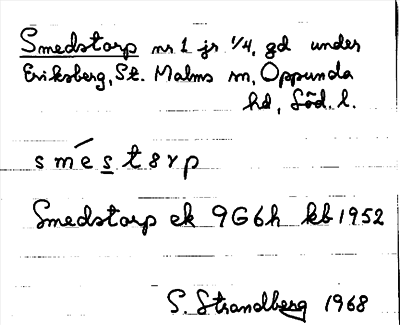 Smedstorp nr 1 jr 1/4, gd under
Eriksberg, St. Malms sn, Oppunda
hd, Söd. l.
smésts​rp
Smedstorp ek 9G6h kb 1952
S. Strandberg 1968